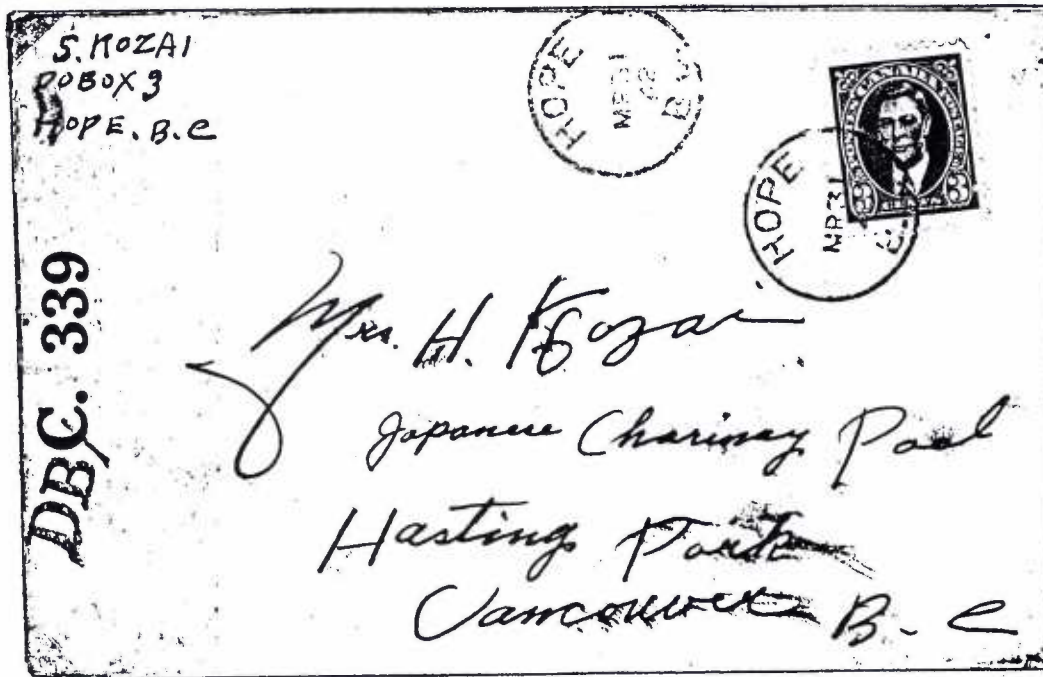 S. KOZAI
POBOX 3
HOPE. B.C
HOPE
MR 31
42
B.C.
HOPE
MR 31
3 3
DB/C. 339
Mrs. H. Kozai
Japanese Charinay Pool
Hasting Park
Vancouver B.C